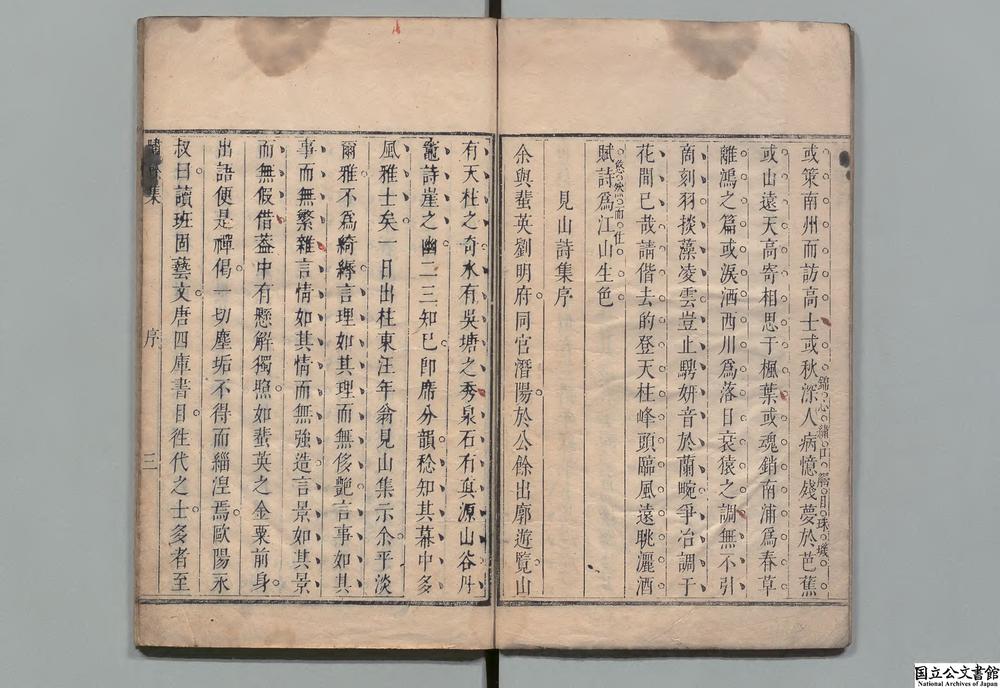 或策南州而訪高士或秋深人病憶殘夢於芭蕉
錦心繡口觸目珠璣
或山遠天高寄相思于楓葉或魂銷南浦爲春草
離鴻之篇或淚洒西川爲落日哀猿之調無不引
商刻羽掞藻凌雲豈止騁妍音於蘭畹爭冶調于
花間已哉請偕去的登天柱峰頭臨風遠眺灑酒
賦詩爲江山生色
悠然而住
見山詩集序
余與蜚英劉明府同官潛陽於公餘出廓遊覽山
有天柱之奇水有吳塘之秀泉石有眞源山谷丹
竈詩崖之幽二三知巳卽席分韻稔知其幕中多
風雅士矣一日出柱東汪年翁見山集示余平淡
爾雅不爲綺縟言理如其理而無侈艷言事如其
事而無繁雜言情如其情而無強造言景如其景
而無假借葢中有懸解獨照如蜚英之金粟前身
出語便是禪偈一切塵垢不得而緇湼焉歐陽永
叔曰讀班固藝文唐四庫書目徃代之士多者至
集
序
三
国立公文書館
National Archives of Japan